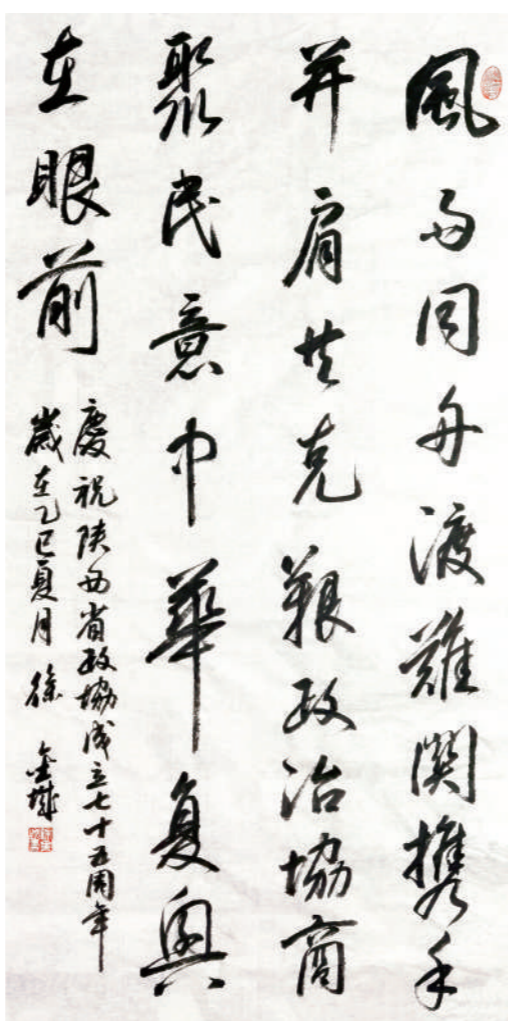 風雨同舟渡難関攜手
并肩共克艱政治協商
聚民意中華復興
在眼前
慶祝陕西省政協成立七十五周年
歲在乙巳夏月 徐